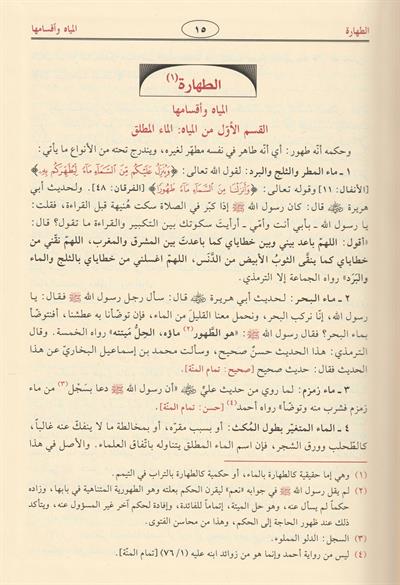 الطهارة ١٥ المياه وأقسامها
الطهارة(١)
المياه وأقسامها
القسم الأول من المياه: الماء المطلق
وحكمه أنّه طهور: أي أنّه طاهر في نفسه مطهّر لغيره، ويندرج تحته من الأنواع ما يأتي:
١ ـ ماء المطر والثلج والبرد: لقول الله تعالى: ﴿وَيُنَزِّلُ عَلَيْكُم مِّنَ السَّمَآءِ مَآءً لِّيُطَهِّرَكُم بِهِۦ﴾
[الأنفال: ١١] وقوله تعالى: ﴿وَأَنزَلْنَا مِنَ السَّمَآءِ مَآءً طَهُورًا﴾ [الفرقان: ٤٨]. ولحديث أبي
هريرة ﷺ قال: كان رسول الله ﷺ إذا كبّر في الصلاة سكت هُنيهة قبل القراءة، فقلت:
يا رسول الله ـ بأبي أنت وأمّي ـ أرأيتَ سكوتك بين التكبير والقراءة ما تقول؟ قال:
«أقول: اللهمّ باعد بيني وبين خطاياي كما باعدتَ بين المشرق والمغرب، اللهمّ نقّني من
خطاياي كما ينقّى الثوبُ الأبيض من الدَّنَس، اللهمّ اغسلني من خطاياي بالثلج والماء
والبَرَد» رواه الجماعة إلا الترمذي.
٢ ـ ماء البحر: لحديث أبي هريرة قال: سأل رجل رسول الله ﷺ فقال: يا
رسول الله، إنّا نركب البحر، ونحمل معنا القليل من الماء، فإن توضأنا به عطشنا، أفنتوضأ
بماء البحر؟ فقال رسول الله ﷺ: «هو الطَّهور(٢) ماؤه، الحِلُّ مَيتته» رواه الخمسة. وقال
الترمذي: هذا الحديث حسنٌ صحيح، وسألت محمد بن إسماعيل البخاريّ عن هذا
الحديث فقال: حديث صحيح [صحيح: تمام المنّة].
٣ ـ ماء زمزم: لما روي من حديث عليّ «أن رسول الله ﷺ دعا بسَجْل(٣) من ماء
زمزم فشرب منه وتوضّأ» رواه أحمد(٤) [حسن: تمام المنّة].
٤ ـ الماء المتغيّر بطول المُكث: أو بسبب مقرّه، أو بمخالطة ما لا ينفكّ عنه غالباً،
كالطّحلب وورق الشجر، فإن اسم الماء المطلق يتناوله باتّفاق العلماء. والأصل في هذا
(١) وهي إما حقيقية كالطهارة بالماء، أو حكمية كالطهارة بالتراب في التيمم.
(٢) لم يقل رسول الله ﷺ في جوابه «نعم» ليقرن الحكم بعلته وهو الطهورية المتناهية في بابها، وزاده
حكماً لم يسأل عنه، وهو حل الميتة، إتماماً للفائدة، وإفادة لحكم آخر غير المسؤول عنه، ويتأكد
ذلك عند ظهور الحاجة إلى الحكم، وهذا من محاسن الفتوى.
(٣) السجل: الدلو المملوء.
(٤) ليس من رواية أحمد وإنما هو من زوائد ابنه عليه (٧٦/١) [تمام المنّة].